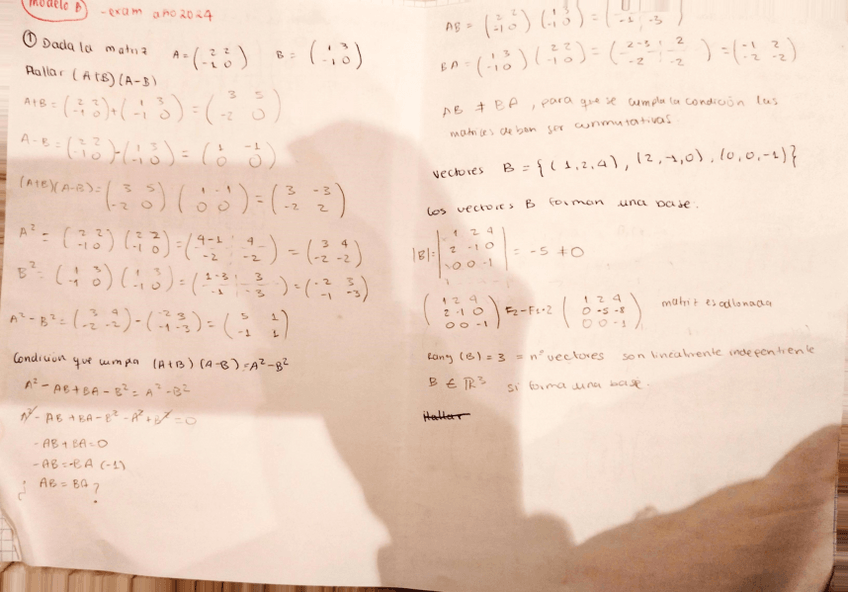 Modelo B - exam año 2024
① Dada la matriz A = (2 2 / -1 0) B = (1 3 / -1 0)
Hallar (A+B)(A-B)
A+B = (2 2 / -1 0) + (1 3 / -1 0) = (3 5 / -2 0)
A-B = (2 2 / -1 0) - (1 3 / -1 0) = (1 -1 / 0 0)
(A+B)(A-B) = (3 5 / -2 0) (1 -1 / 0 0) = (3 -3 / -2 2)
A² = (2 2 / -1 0) (2 2 / -1 0) = (4-1 4 / -2 -2) = (3 4 / -2 -2)
B² = (1 3 / -1 0) (1 3 / -1 0) = (1-3 3 / -1 -3) = (-2 3 / -1 -3)
A²-B² = (3 4 / -2 -2) - (-2 3 / -1 -3) = (5 1 / -1 1)
Condicion que cumpla (A+B)(A-B)=A²-B²
A² - AB + BA - B² = A² - B²
A² - AB + BA - B² - A² + B² = 0
-AB + BA = 0
-AB = -BA (-1)
¿ AB = BA ?
AB = (2 2 / -1 0) (1 3 / -1 0) = ( -1 -3)
BA = (1 3 / -1 0) (2 2 / -1 0) = (2-3 2 / -2 -2) = (-1 2 / -2 -2)
AB ≠ BA, para que se cumpla la condición las
matrices deban ser conmutativas.
vectores B = {(1,2,4), (2,-1,0), (0,0,-1)}
Los vectores B forman una base.
|B| = |1 2 4 / 2 -1 0 / 0 0 -1| = -5 ≠ 0
(1 2 4 / 2 -1 0 / 0 0 -1) F2-F1·2 (1 2 4 / 0 -5 -8 / 0 0 -1) matriz escalonada
Rang (B) = 3 = nº vectores son linealmente indepentrente
B ∈ ℝ³ si forma una base.
Hallar